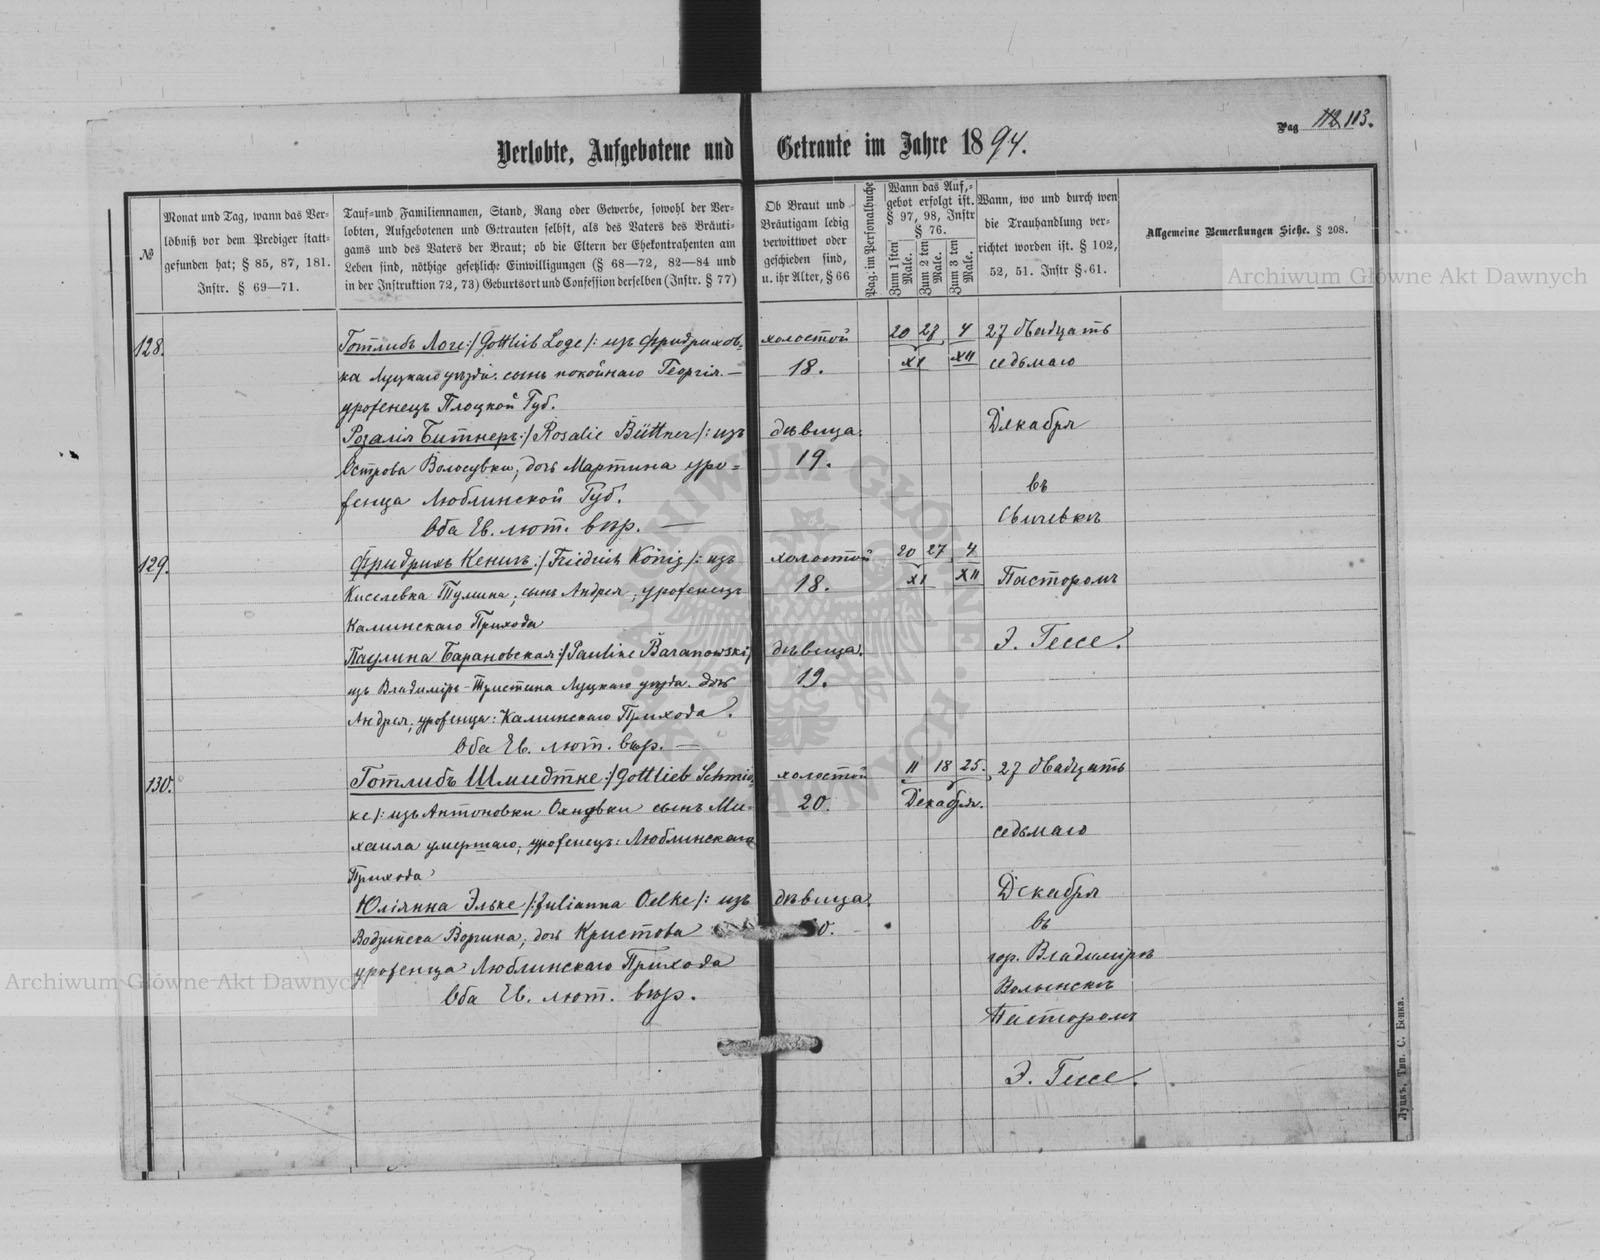 Verlobte, Aufgebotene und Getraute im Jahre 1894.
Pag 112 113.
№
Monat und Tag, wann das Ver-
löbniß vor dem Prediger statt-
gefunden hat; § 85, 87, 181.
Instr. § 69—71.
Tauf- und Familiennamen, Stand, Rang oder Gewerbe, sowohl der Ver-
lobten, Aufgebotenen und Getrauten selbst, als des Vaters des Bräuti-
gams und des Vaters der Braut; ob die Eltern der Ehekontrahenten am
Leben sind, nöthige gesetzliche Einwilligungen (§ 68—72, 82—84 und
in der Instruktion 72, 73) Geburtsort und Confession derselben (Instr. § 77)
Ob Braut und
Bräutigam ledig
verwittwet oder
geschieden sind,
u. ihr Alter, § 66
Pag. im Personalbuche
Wann das Auf-
gebot erfolgt ist.
§ 97, 98, Instr
§ 76.
Zum 1 sten Male.
Zum 2 ten Male.
Zum 3 ten Male.
Wann, wo und durch wen
die Trauhandlung ver-
richtet worden ist. § 102,
52, 51. Instr §. 61.
Allgemeine Bemerkungen Siehe. § 208.
128.
Готлибъ Логе :/ Gottlieb Loge /: изъ Фридрихов-
ка Луцкаго уѣзда. сынъ покойнаго Георгія. —
уроженецъ Плоцкой Губ.
Розалія Битнеръ :/ Rosalie Büttner /: изъ
Острова Волосувки, дочь Мартина уро-
женца Люблинской Губ.
Оба Ев. лют. вѣр. —
холостой
18.
дѣвица.
19.
20 27 4
XI XII
27 двадцать
седьмаго
Декабря
въ
Свичевкѣ
Пасторомъ
Э. Гессе.
129.
Фридрихъ Кенигъ :/ Friedrich König /: изъ
Киселевка Тумина, сынъ Андрея, уроженецъ
Каминскаго Прихода
Паулина Барановская :/ Pauline Baranowski /
изъ Владимір- Луцкаго уѣзда. дочь
Андрея, уроженца: Каминскаго Прихода.
Оба Ев. лют. вѣр. —
холостой
18.
дѣвица.
19.
20 27 4
XI XII
130.
Готлибъ Шмидтке :/ Gottlieb Schmid-
ke /: изъ Антоновки Охновки сынъ Ми-
хаила умершаго, уроженецъ: Люблинскаго
Прихода
Юліянна Эльке /: Julianna Oelke /: изъ
дочь Кристова
уроженца Люблинскаго Прихода
Оба Ев. лют. вѣр.
холостой
20.
дѣвица.
11 18 25.
Декабря.
27 двадцать
седьмаго
Декабря
въ
гор. Владимірѣ
Волынскѣ
Пасторомъ
Э. Гессе.
Луцкъ, Тип. С. Бенка.
Archiwum Główne Akt Dawnych
Archiwum Główne Akt Dawnych
ARCHIWUM GŁÓWNE AKT DAWNYCH